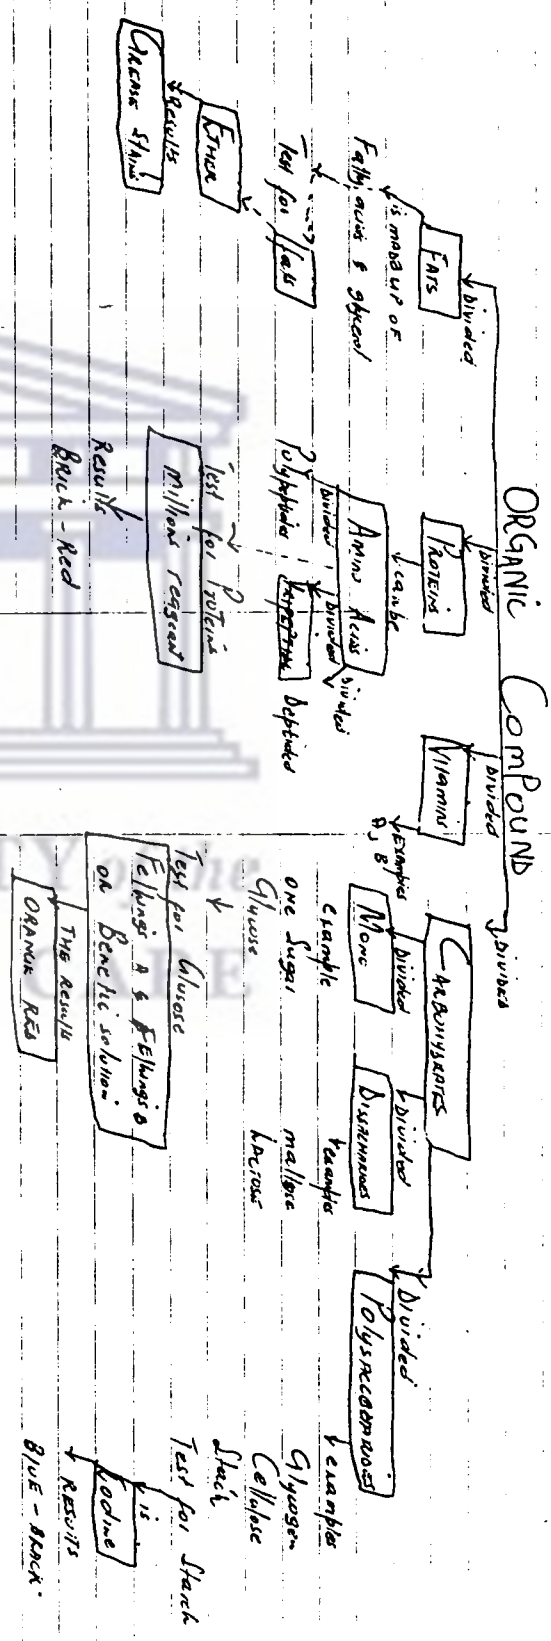 ORGANIC COMPOUND
Divided
FATS
is made up of
Fatty acids & glycerol
Test for fats
ETHER
Results
GREASE STAINS
Divided
PROTEINS
can be
AMINO ACIDS
Divided
Divided
Divided
Polypeptides
Deptides
Test for Proteins
Millions reagent
Results
BRICK - Red
Divided
VITAMINS
EXAMPLES
A, B
DIVIDED
CARBOHYDRATES
Divided
MONO
example
one sugar
Glucose
Test for Glucose
Felhings A & FElhings B
OR Benetic solution
THE RESULTS
ORANGE RED
Divided
DISSACHARIDES
examples
maltose
LACTOSE
Divided
POLYSACCHARIDES
examples
Glycogen
Cellulose
Stach
Test for Starch
is
Iodine
RESULTS
BLUE - BLACK.
TY of the
CAPE